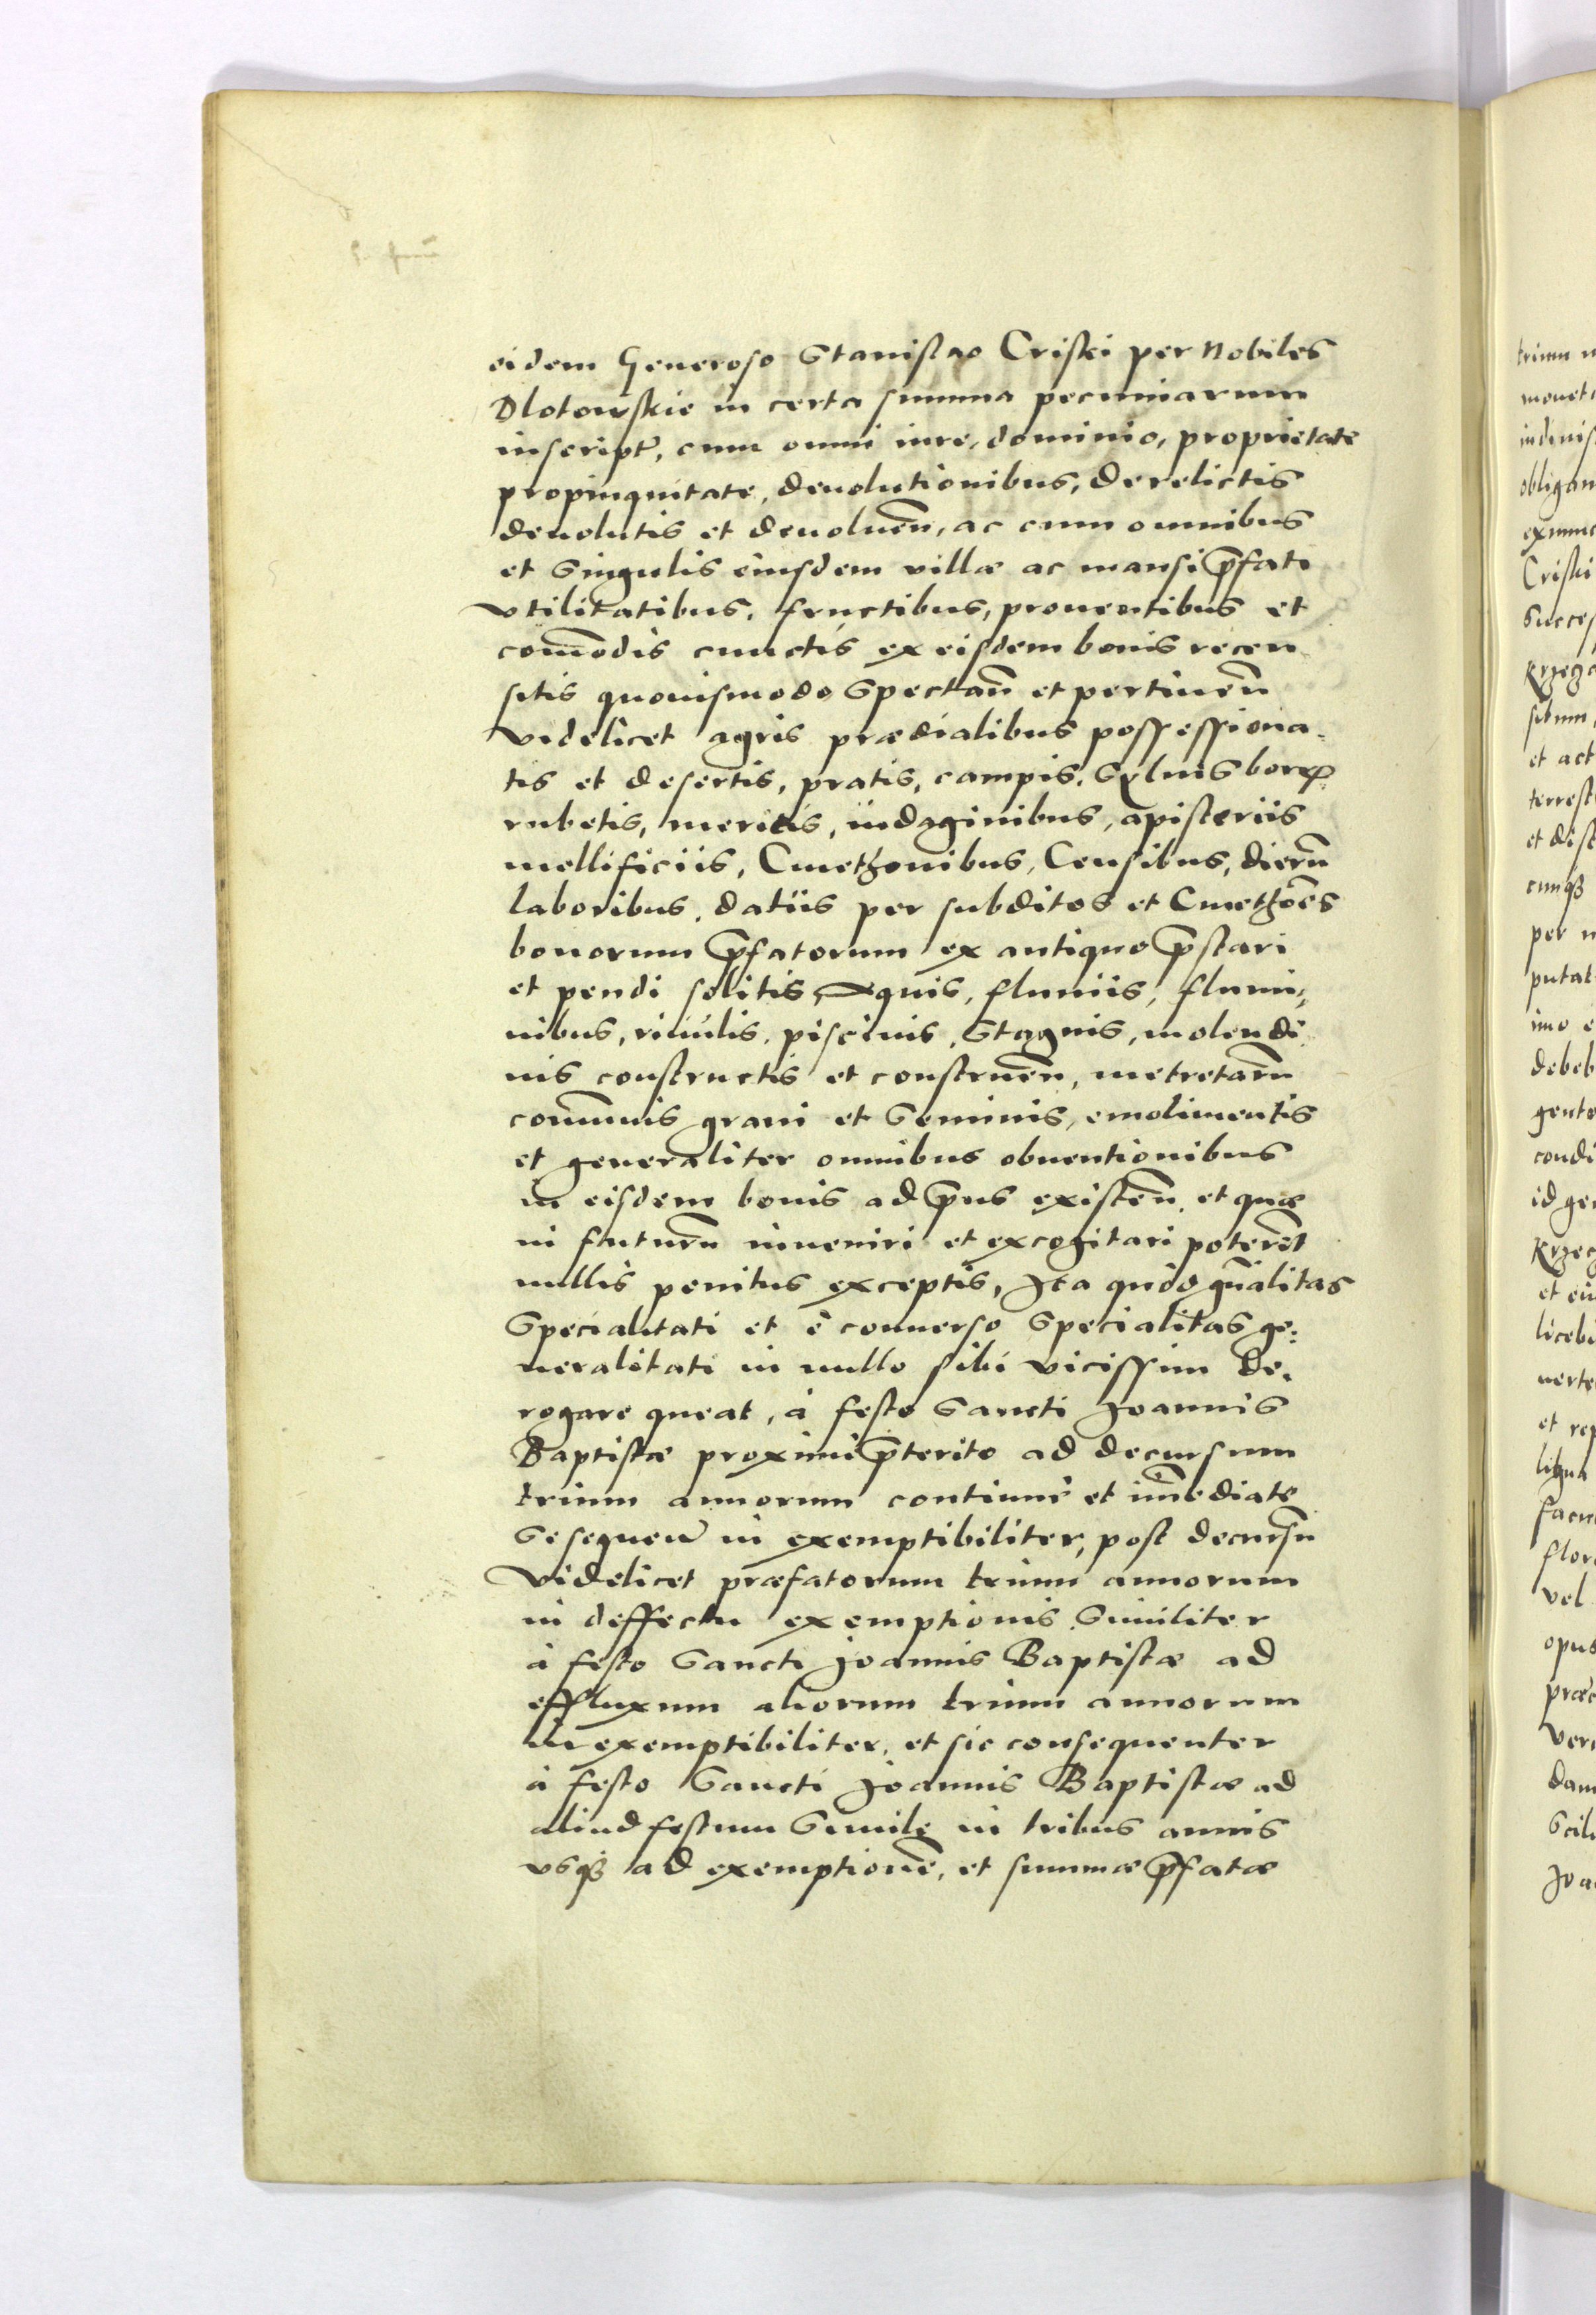 eidem Generoso Stanislao Criski per Nobiles
Dlotowskie in certa summa pecuniarum
inscript͂, cum omni iure, dominio, proprietate
propinquitate, deuolutionibus, derelictis
deuolutis et deuoluen̄, ac cum omnibus
et singulis eiusdem villæ ac mansi p̄fati
vtilitatibus, fructibus, prouentibus et
com̄odis cunctis ex eisdem bonis recen
sitis quouismodo spectan̄ et pertinen̄
videlicet agris prædialibus possessiona-
tis et desertis, pratis, campis, syluis borr͂
rubetis, mericis, indaginibus, apisteriis
mellificiis, Cmethonibus, Censibus, dierū
laboribus, datiis per subditos et Cmethoēs
bonorum p̄fatorum ex antiquo p̄stari
et pendi solitis, aquis, fluuiis, flumi-
nibus, riuulis, piscinis, stagnis, molendi
nis constructis et construen̄, metretarū
com̄unis grani et seminis, emolimentis
et generaliter omnibus obuentionibus
in eisdem bonis ad p̄ns existen̄, et quæ
in futurū inueniri et excogitari poterēt
nullis penitus exceptis, Ita quòd gn̄alitas
specialitati et è conuerso specialitas ge-
neralitati in nullo sibi vicissim de-
rogare queat, à festo Sancti Joannis
Baptistæ proximè p̄terito ad decursum
trium annorum continuè et im̄ediate
sesequen̄ in exemptibiliter, post decursū
videlicet præfatorum trium annorum
in deffectu exemptionis similiter
à festo Sancti Joannis Baptistæ ad
effluxum aliorum trium annorum
in exemptibiliter, et sic consequenter
à festo Sancti Joannis Baptistæ ad
aliud festum simile in tribus annis
vsqȝ ad exemptionē, et summæ p̄fatæ